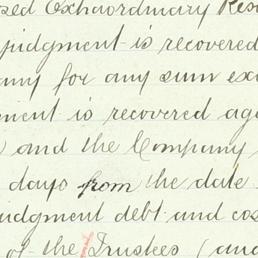 sed Extraordinary Reso
judgment is recovered
any for any sum exc
ment is recovered aga
and the Company
days from the date
udgment debt and cos
of the Trustees (and